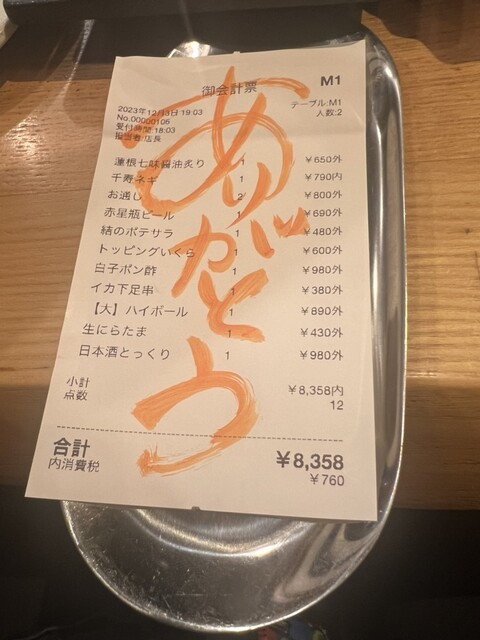 御会計票
M1
2023年12月13日 19:03
テーブル:M1
No.00000106
人数:2
受付時間:18:03
担当者:店長
蓮根七味醤油炙り 1 ¥650外
千寿ネギ 1 ¥790内
お通し 2 ¥800外
赤星瓶ビール 1 ¥690外
結のポテサラ 1 ¥480外
トッピングいくら 1 ¥600外
白子ポン酢 1 ¥980外
イカ下足串 1 ¥380外
【大】ハイボール 1 ¥890外
生にらたま 1 ¥430外
日本酒とっくり 1 ¥980外
小計 ¥8,358内
点数 12
合計 ¥8,358
内消費税 ¥760
ありがとう